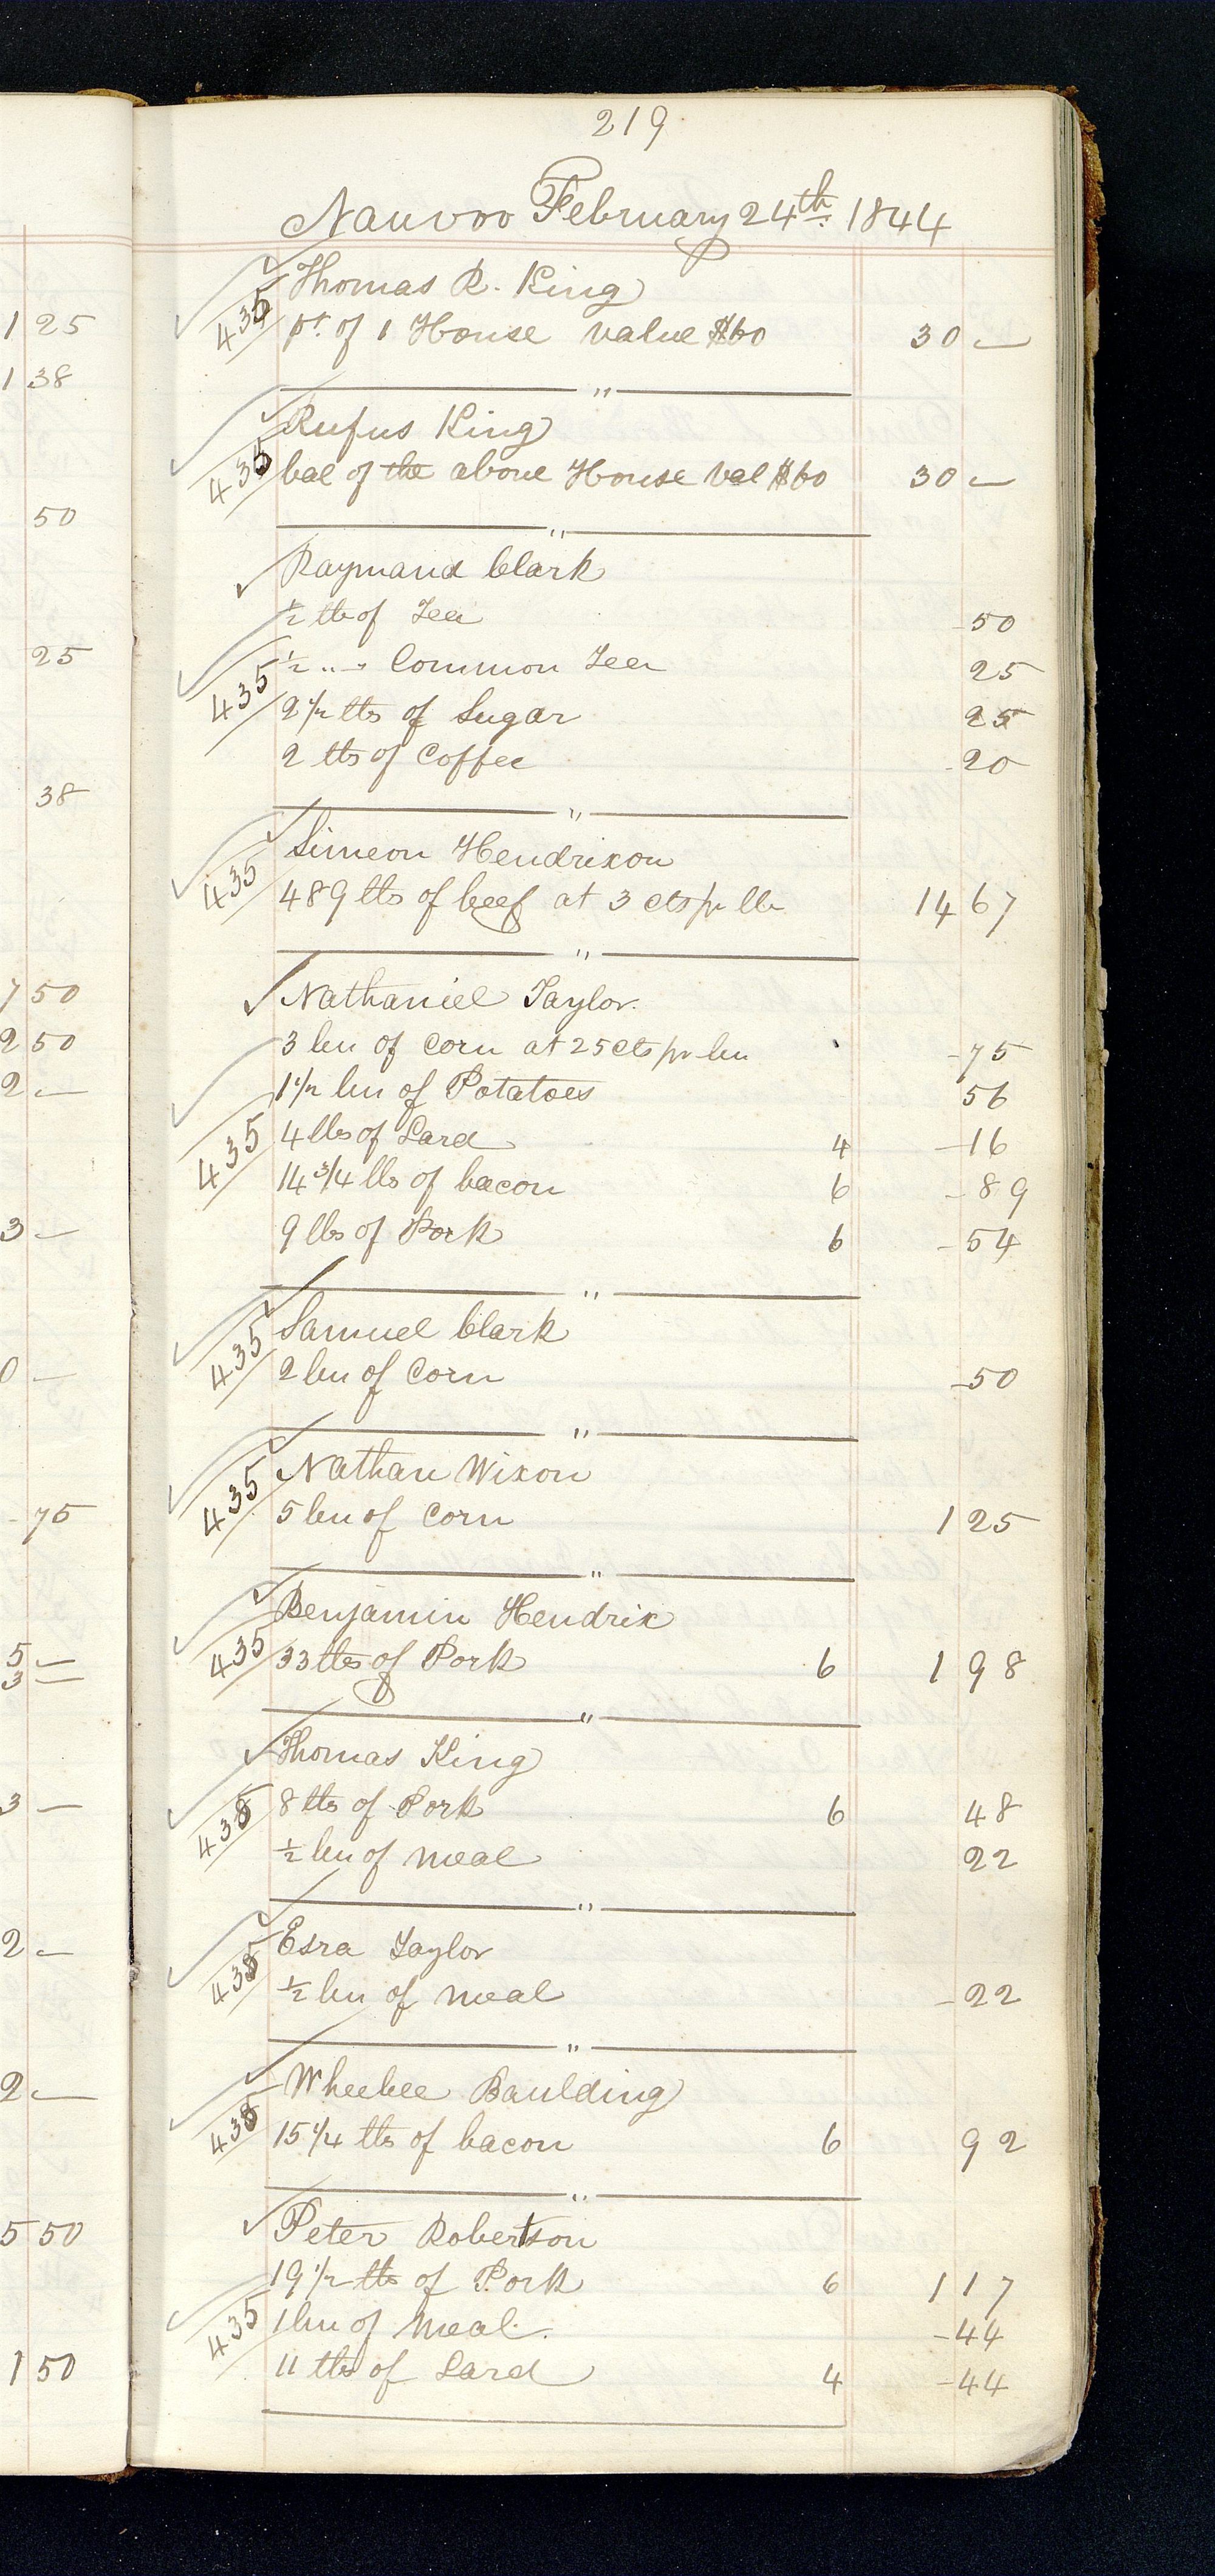 219
Nauvoo February 24th 1844
Thomas R. King
435 pt. of 1 House value $60 30 —
"
Rufus King
435 bal of the above House Val $60 30 —
"
Raymand Clark
½ lb of Tea 50
½ " " Common Tea 25
435 2½ lbs of Sugar 25
2 lbs of Coffee 20
"
Simeon Hendrixon
435 489 lbs of beef at 3 cts pr lb 14 67
"
Nathaniel Taylor.
3 bu of corn at 25 cts pr bu 75
1½ bu of Potatoes 56
435 4 lbs of Lard 4 16
14 3/4 lbs of bacon 6 89
9 lbs of Pork 6 54
"
Samuel Clark
435 2 bu of corn 50
"
Nathan Wixon
435 5 bu of corn 1 25
"
Benjamin Hendrix
435 33 lbs of Pork 6 1 98
"
Thomas King
435 8 lbs of Pork 6 48
½ bu of meal 22
"
Esra Taylor
435 ½ bu of meal 22
"
Baulding
435 15 1/4 lbs of bacon 6 92
"
Peter Robertson
19 ½ lbs of Pork 6 1 17
435 1 bu of meal. 44
11 lbs of Lard 4 44
1 25
1 38
50
25
38
7 50
2 50
2 —
3 —
0 —
75
5 —
3 —
3 —
2 —
2 —
5 50
1 50